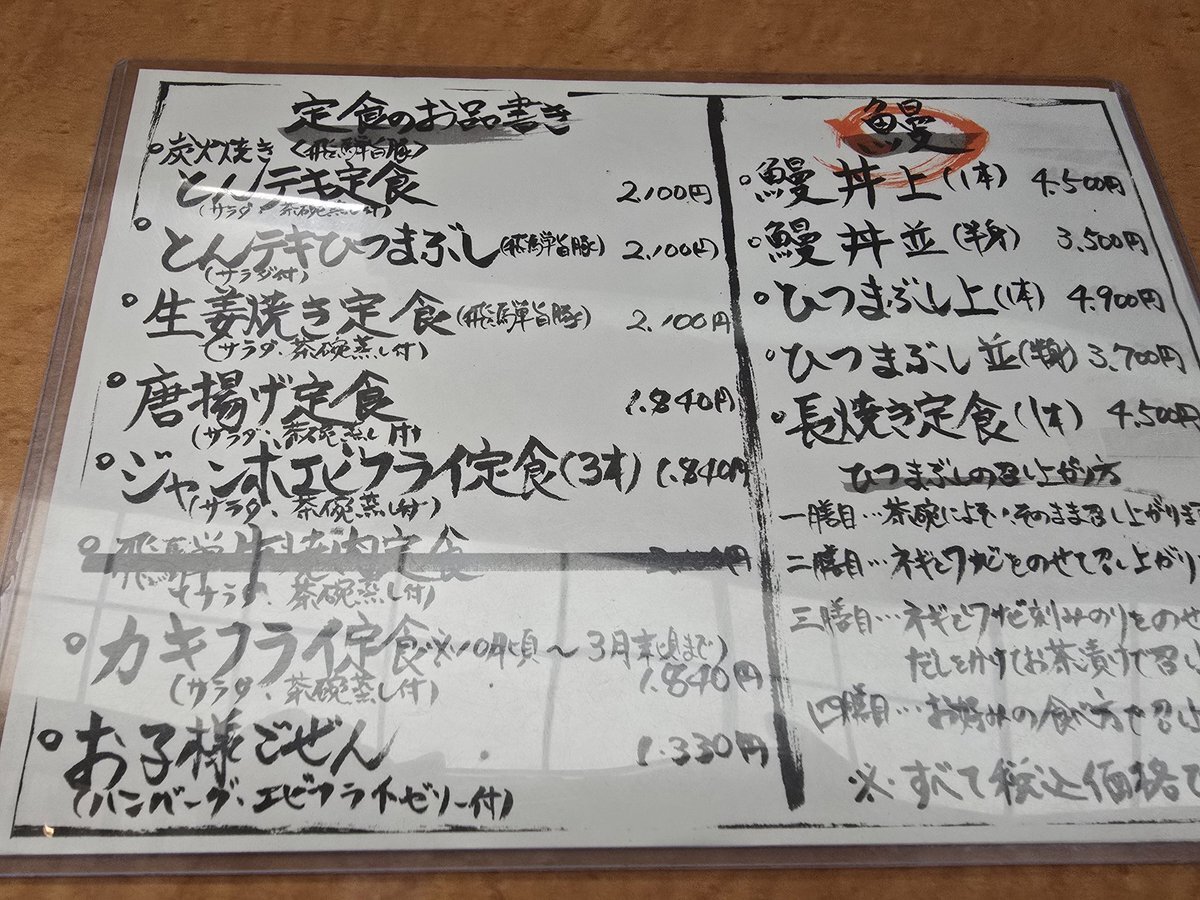 定食のお品書き
炭火焼き〈飛騨旨豚〉
とんテキ定食 2,100円
(サラダ、茶碗蒸し付)
とんテキひつまぶし(飛騨旨豚) 2,100円
(サラダ付)
生姜焼き定食(飛騨旨豚) 2,100円
(サラダ、茶碗蒸し付)
唐揚げ定食 1,840円
(サラダ、茶碗蒸し付)
ジャンボエビフライ定食(3本) 1,840円
(サラダ、茶碗蒸し付)
飛騨牛焼肉定食
(サラダ、茶碗蒸し付)
カキフライ定食 ※10月頃〜3月末頃まで
(サラダ、茶碗蒸し付) 1,840円
お子様ごぜん 1,330円
(ハンバーグ、エビフライ、ゼリー付)
鰻
鰻丼上(1本) 4,500円
鰻丼並(半身) 3,500円
ひつまぶし上(1本) 4,900円
ひつまぶし並(半身) 3,700円
長焼き定食(1本) 4,500円
ひつまぶしの召し上がり方
一膳目…茶碗によそい、そのまま召し上がります
二膳目…ネギとワサビをのせて召し上がり
三膳目…ネギとワサビ刻みのりをのせ
だしをかけてお茶漬けで召し
四膳目…お好みの食べ方で召し
※すべて税込価格で